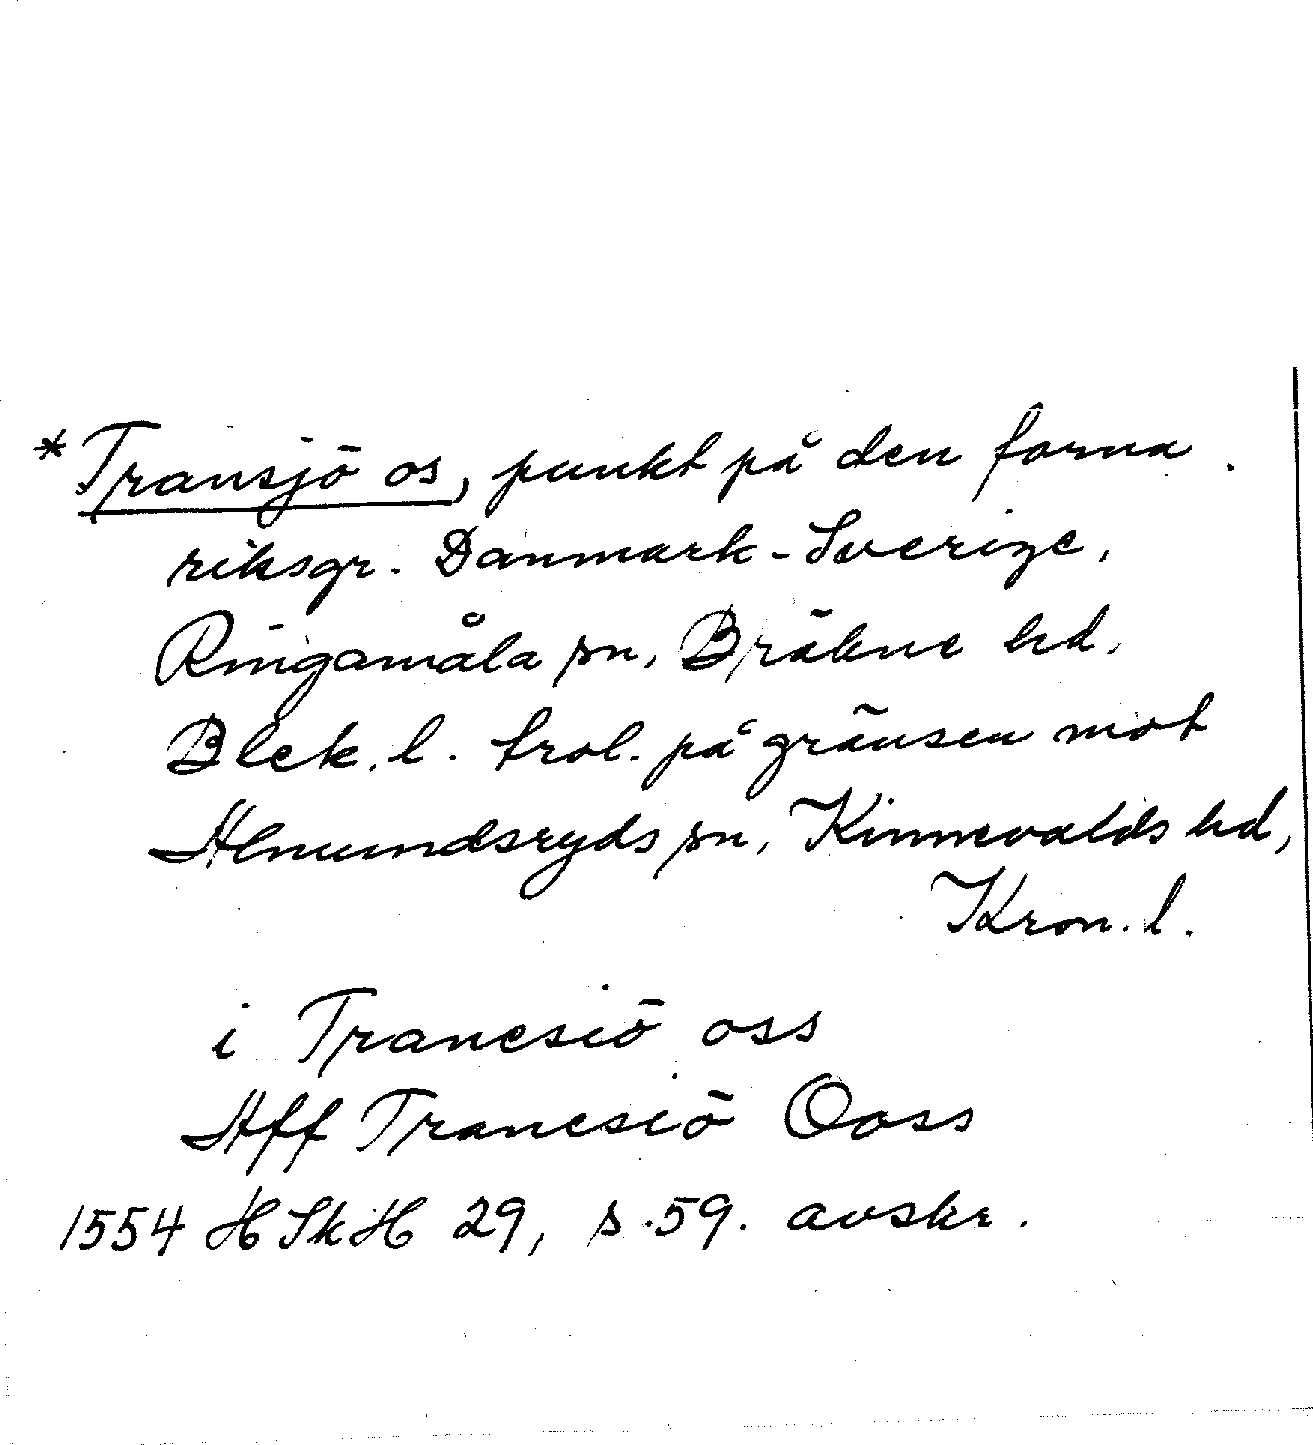 *Transjö os, punkt på den forna
riksgr. Danmark-Sverige,
Ringamåla sn, Bräkne hd,
Blek. l. trol. på gränsen mot
Almundsryds sn, Kinnevalds hd,
Kron. l.
i Tranesiö oss
Aff Tranesiö Ooss
1554 HSkH 29, s. 59. avskr.